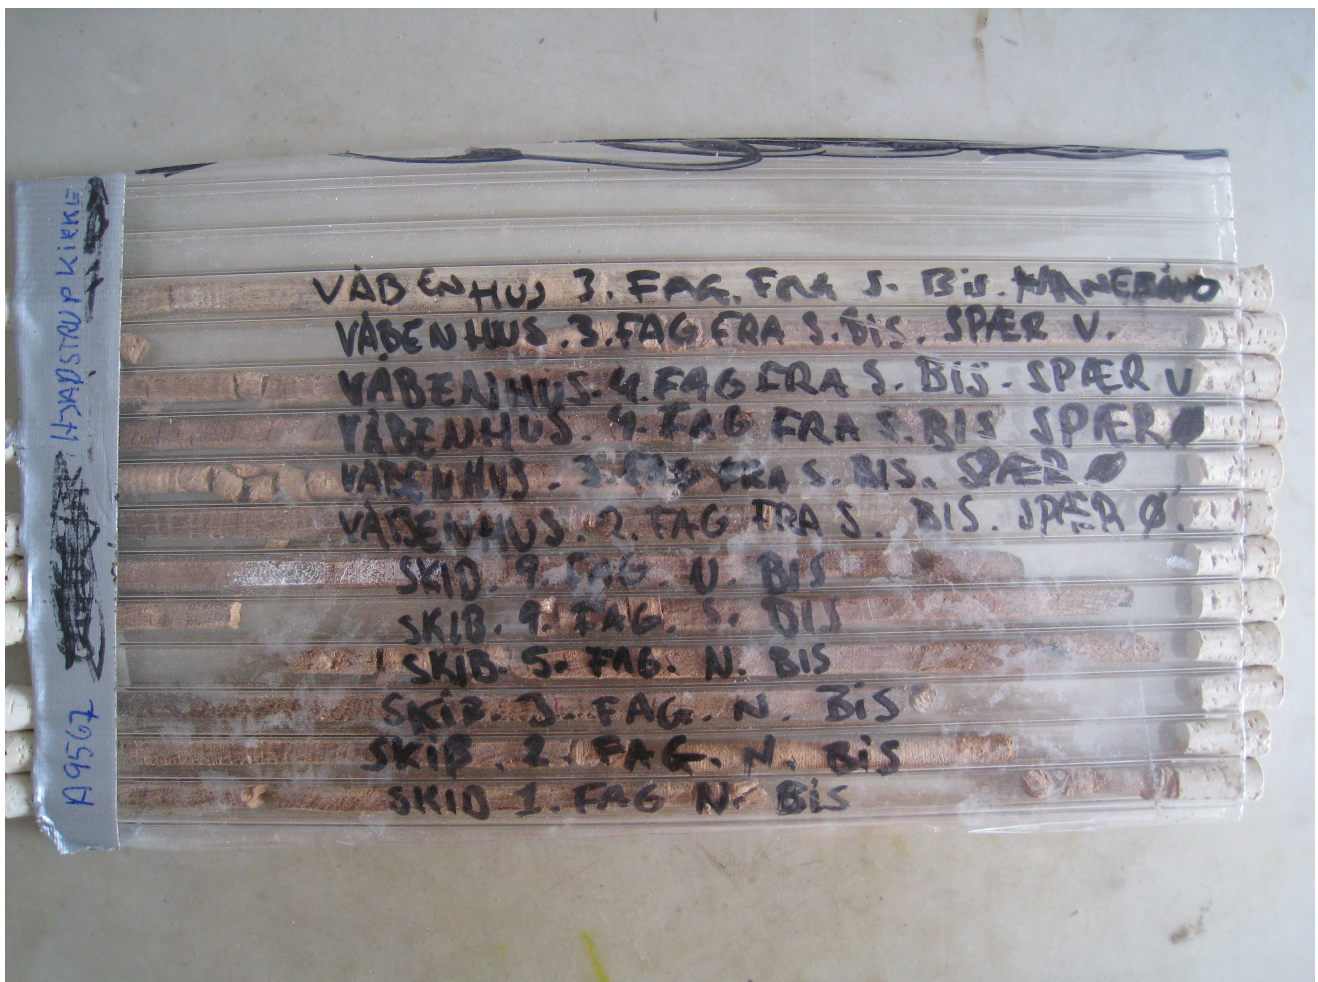 A9567 HJADSTRUP KIRKE
VÅBENHUS 3. FAG. FRA S. BIS. HANEBÅND
VÅBENHUS. 3. FAG FRA S. BIS. SPÆR V.
VÅBENHUS. 4. FAG FRA S. BIS. SPÆR V
VÅBENHUS. 4. FAG FRA S. BIS SPÆR Ø
VÅBENHUS. 3. FAG FRA S. BIS. SPÆR Ø
VÅBENHUS. 2. FAG FRA S. BIS. SPÆR Ø.
SKIB. 9. FAG. N. BIS
SKIB. 9. FAG. S. BIS
SKIB. 5. FAG. N. BIS
SKIB. 3. FAG. N. BIS
SKIB. 2. FAG. N. BIS
SKIB 1. FAG N. BIS